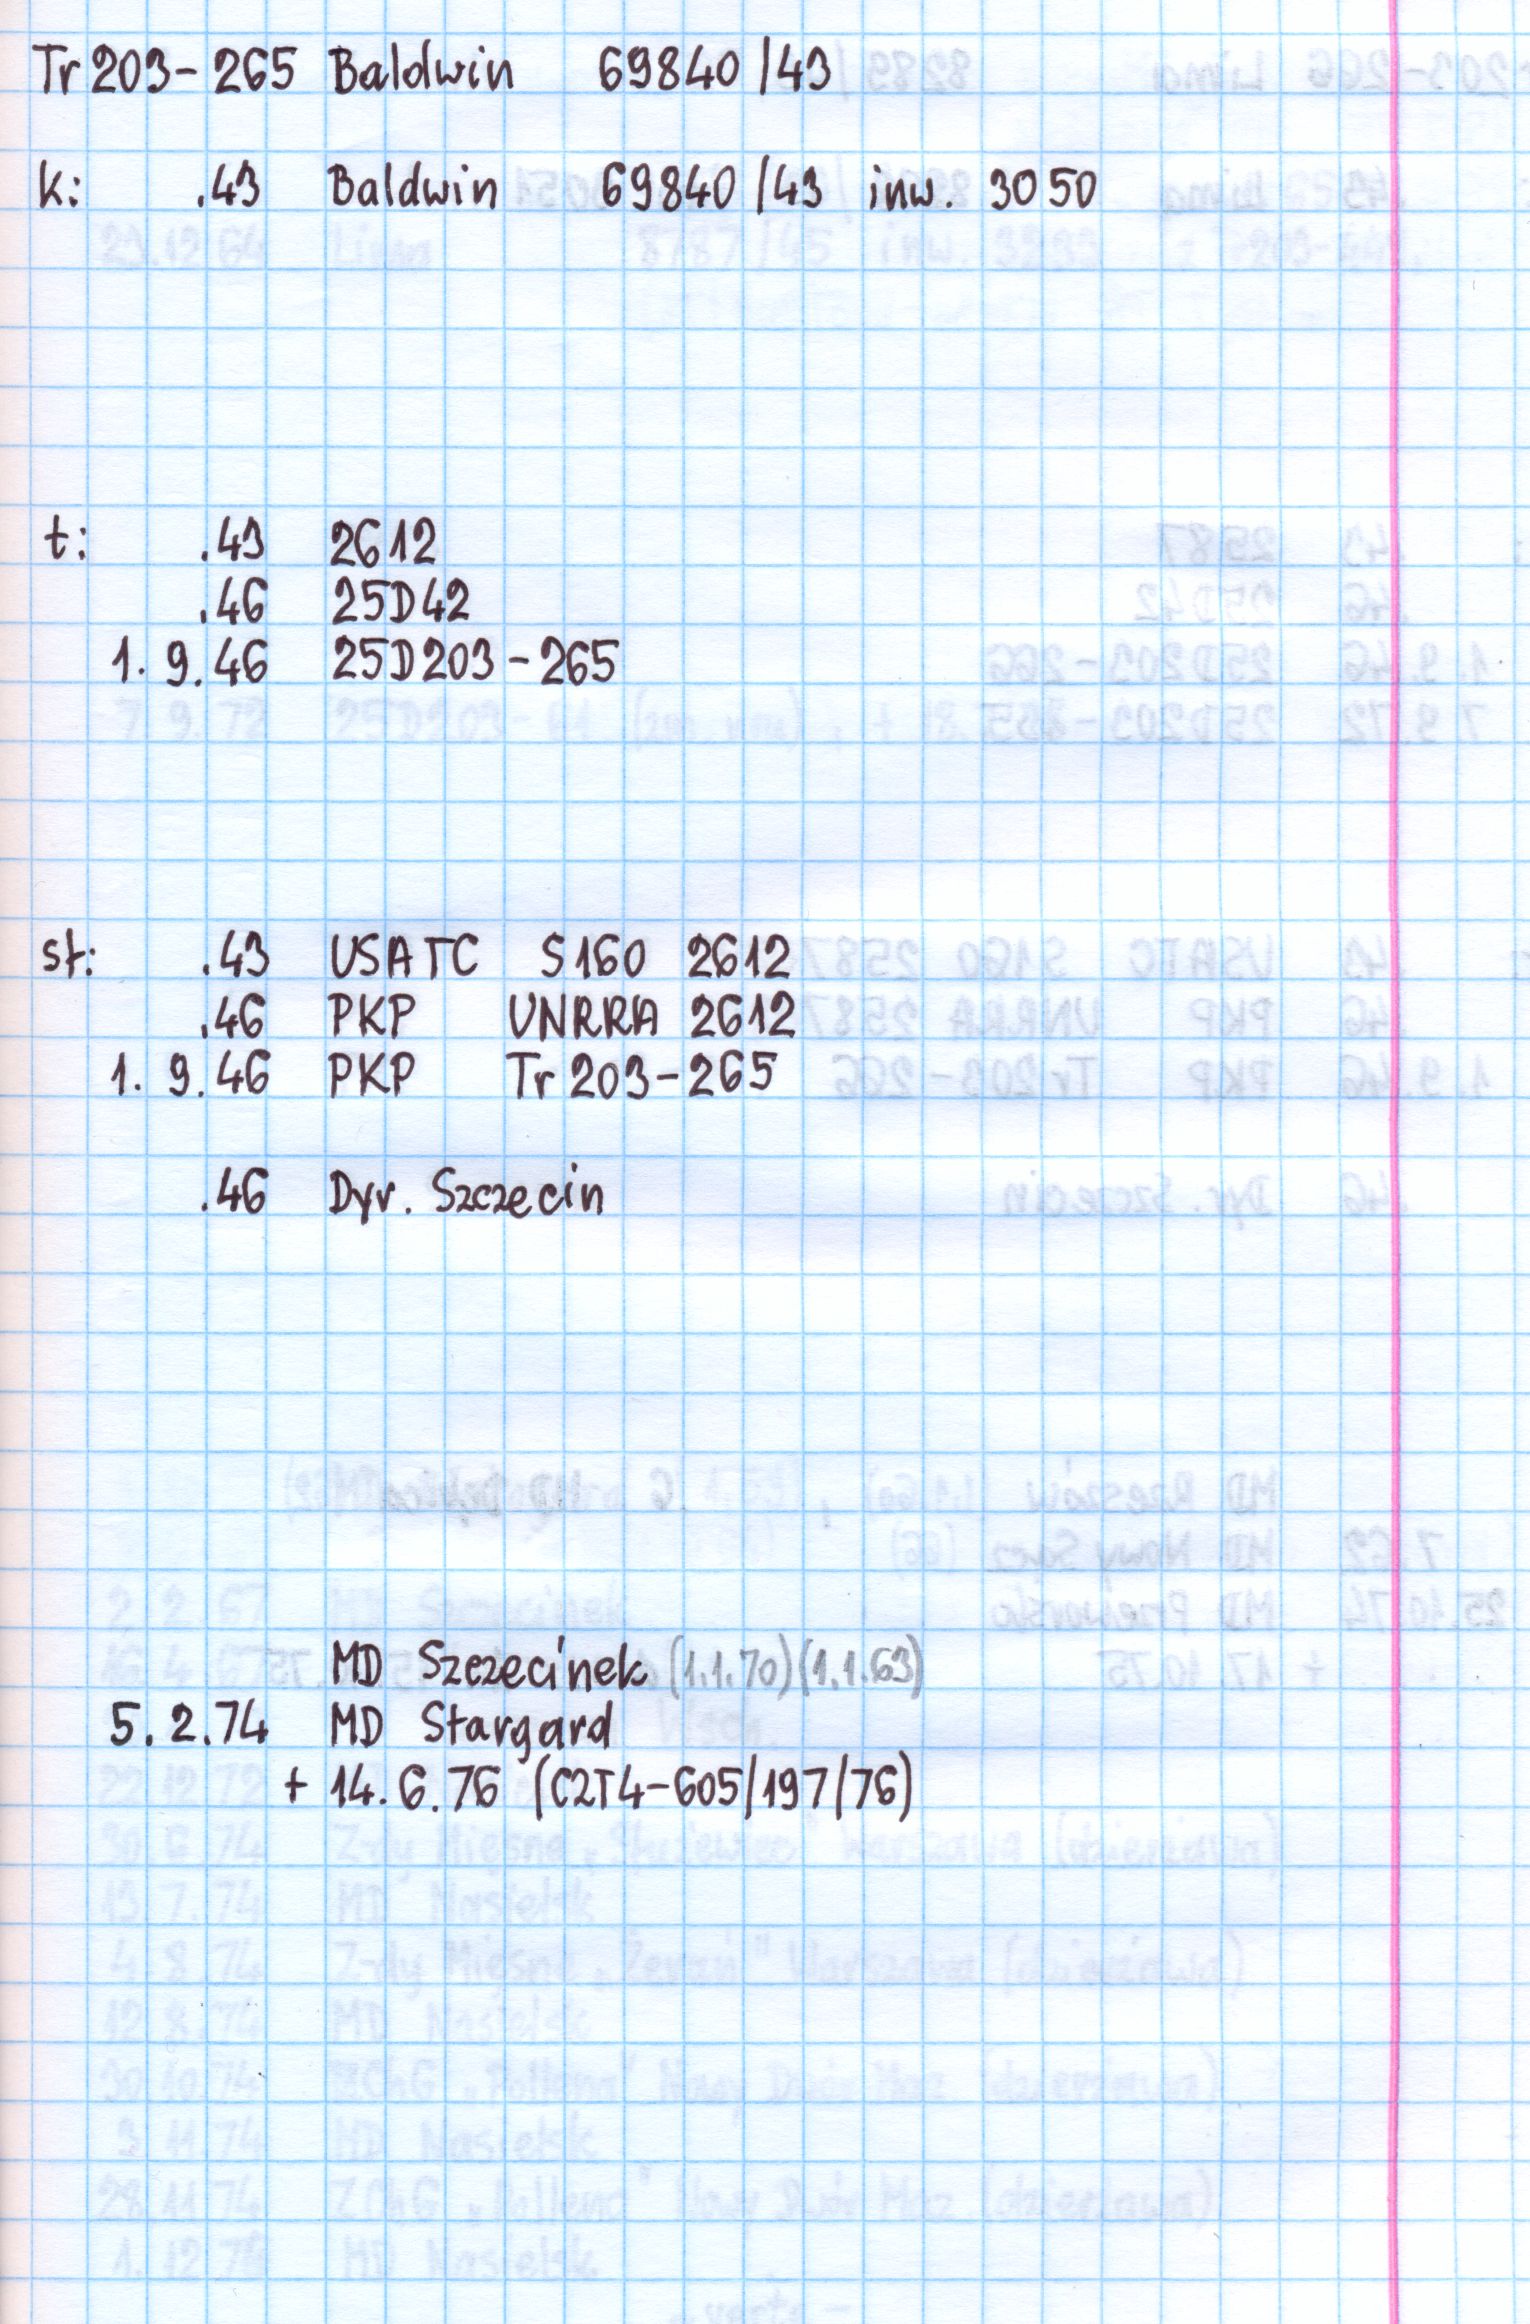 Tr 203-265 Baldwin 69840/43
k: .43 Baldwin 69840/43 inw. 3050
t: .43 2612
.46 25D42
1. 9.46 25D203-265
st: .43 USATC S160 2612
.46 PKP UNRRA 2612
1. 9.46 PKP Tr 203-265
.46 Dyr. Szczecin
MD Szczecinek (1.1.70) (1.1.63)
5. 2.74 MD Stargard
+ 14. 6.76 (C2T4-605/197/76)